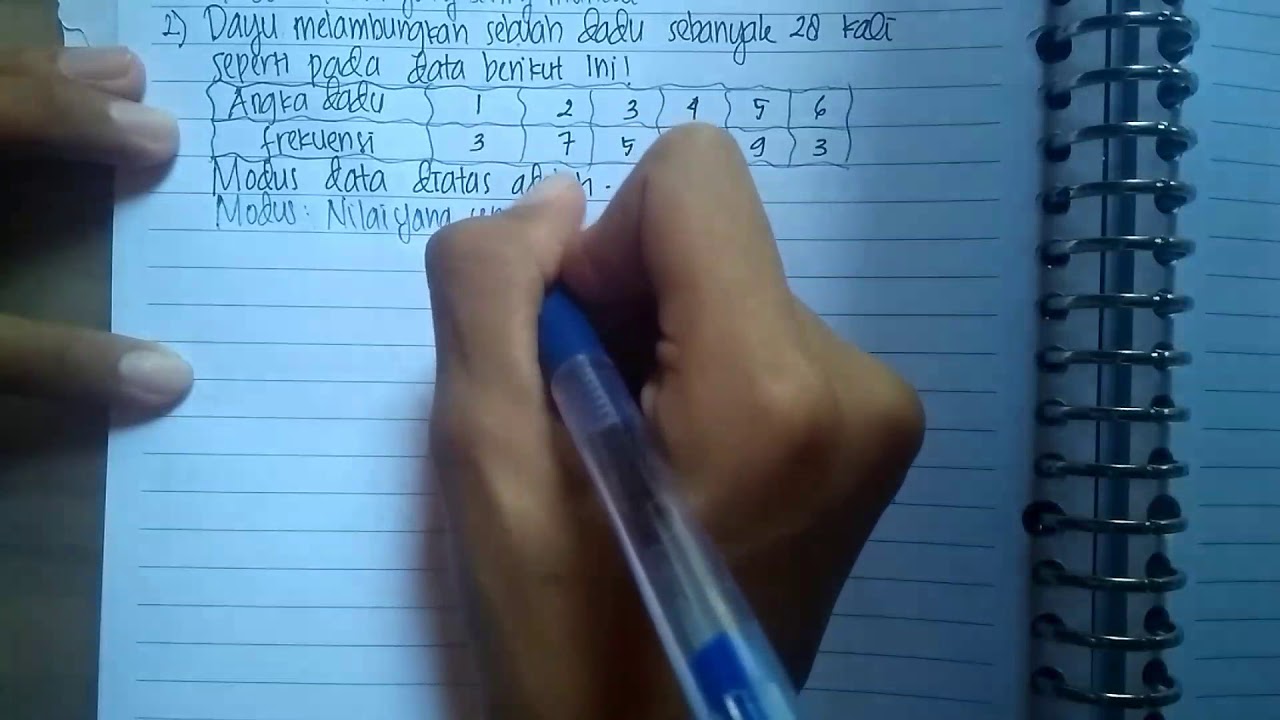 2) Dayu melambungkan sebuah dadu sebanyak 28 kali
seperti pada data berikut ini!
Angka dadu 1 2 3 4 5 6
frekuensi 3 7 5 9 3
Modus data diatas
Modus: Nilai yang